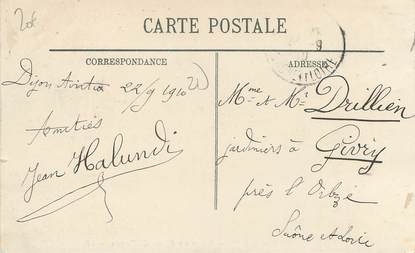 20€
CARTE POSTALE
CORRESPONDANCE
ADRESSE
Dijon Aviation 22/9 1910
Amitiés
Jean Halundi
Mme et Mr Drillien
jardiniers à Givry
près l'Orbize
Saône et Loire